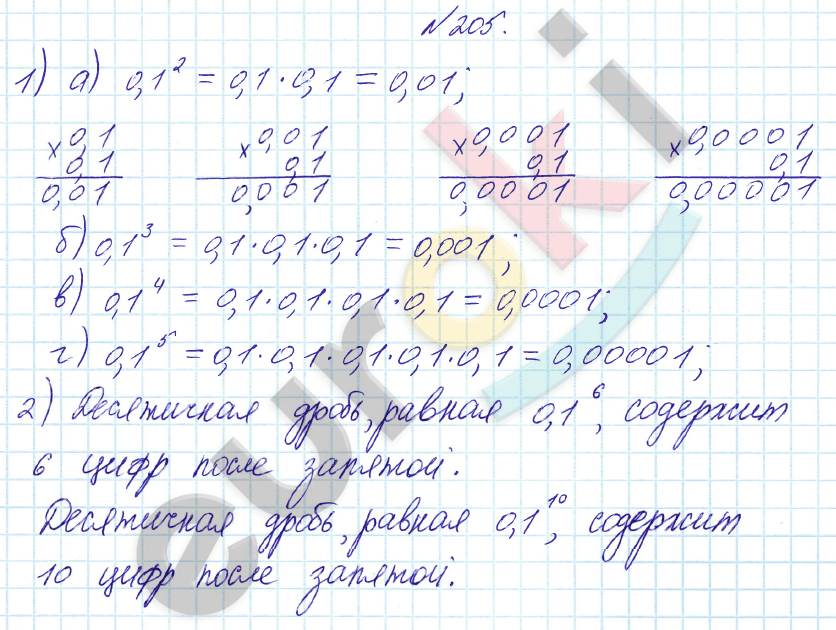 №205.
1) а) 0,1² = 0,1·0,1 = 0,01;
×0,1 ×0,01 ×0,001 ×0,0001
0,1 0,1 0,1 0,1
0,01 0,001 0,0001 0,00001
б) 0,1³ = 0,1·0,1·0,1 = 0,001;
в) 0,1⁴ = 0,1·0,1·0,1·0,1 = 0,0001;
г) 0,1⁵ = 0,1·0,1·0,1·0,1·0,1 = 0,00001;
2) Десятичная дробь, равная 0,1⁶, содержит
6 цифр после запятой.
Десятичная дробь, равная 0,1¹⁰, содержит
10 цифр после запятой.
euroki